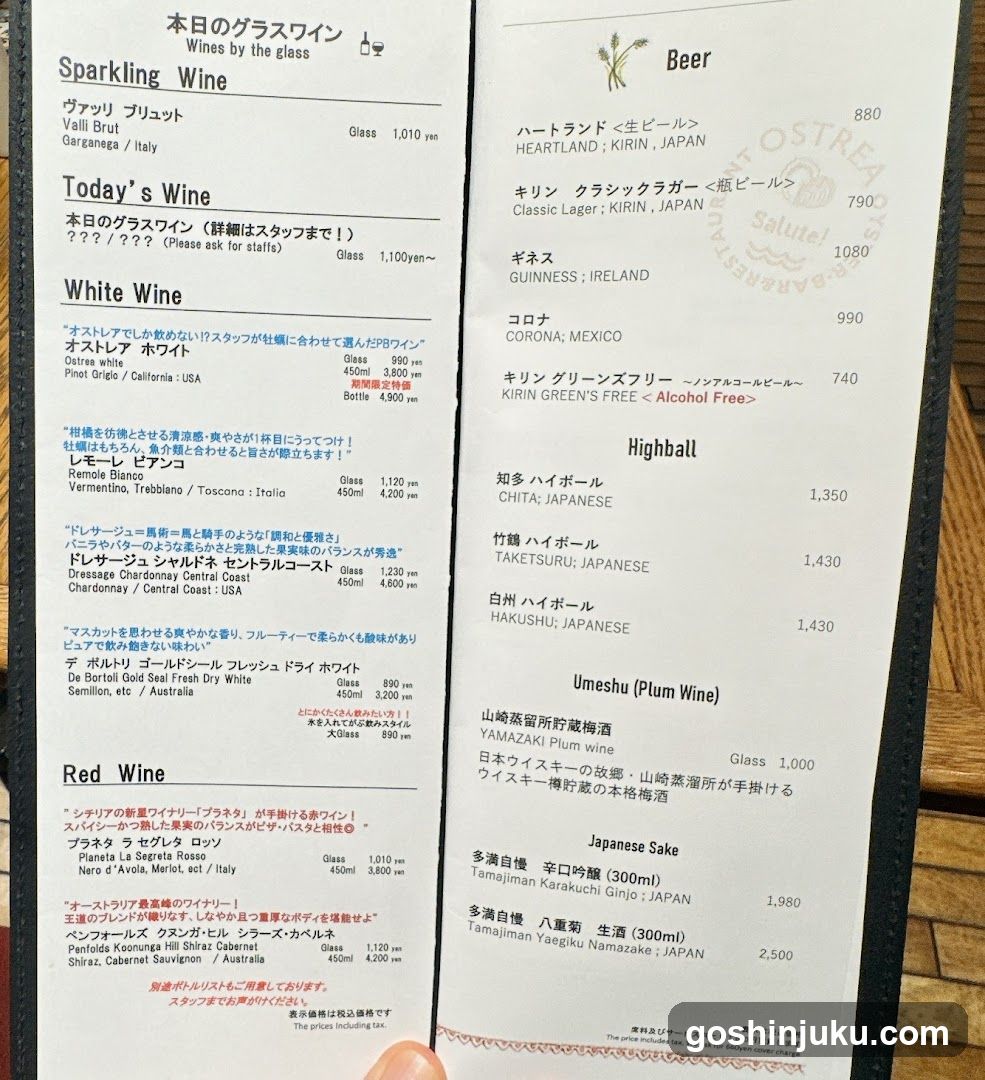 本日のグラスワイン
Wines by the glass
Sparkling Wine
ヴァッリ ブリュット
Valli Brut
Garganega / Italy
Glass 1,010 yen
Today's Wine
本日のグラスワイン (詳細はスタッフまで!)
??? / ??? (Please ask for staffs)
Glass 1,100yen~
White Wine
"オストレアでしか飲めない!?スタッフが牡蠣に合わせて選んだPBワイン"
オストレア ホワイト
Ostrea white
Pinot Grigio / California : USA
Glass 990 yen
450ml 3,800 yen
期間限定特価
Bottle 4,900 yen
"柑橘を彷彿とさせる清涼感・爽やさが1杯目にうってつけ!
牡蠣はもちろん、魚介類と合わせると旨さが際立ちます!"
レモーレ ビアンコ
Remole Bianco
Vermentino, Trebbiano / Toscana : Italia
Glass 1,120 yen
450ml 4,200 yen
"ドレサージュ=馬術=馬と騎手のような「調和と優雅さ」
バニラやバターのような柔らかさと完熟した果実味のバランスが秀逸"
ドレサージュ シャルドネ セントラルコースト
Dressage Chardonnay Central Coast
Chardonnay / Central Coast : USA
Glass 1,230 yen
450ml 4,600 yen
"マスカットを思わせる爽やかな香り、フルーティーで柔らかくも酸味があり
ピュアで飲み飽きない味わい"
デ ボルトリ ゴールドシール フレッシュ ドライ ホワイト
De Bortoli Gold Seal Fresh Dry White
Semillon, etc / Australia
Glass 890 yen
450ml 3,200 yen
とにかくたくさん飲みたい方!!
氷を入れてがぶ飲みスタイル
大Glass 890 yen
Red Wine
" シチリアの新星ワイナリー「プラネタ」 が手掛ける赤ワイン!
スパイシーかつ熟した果実のバランスがピザ・パスタと相性◎ "
プラネタ ラ セグレタ ロッソ
Planeta La Segreta Rosso
Nero d'Avola, Merlot, ect / Italy
Glass 1,010 yen
450ml 3,800 yen
"オーストラリア最高峰のワイナリー!
王道のブレンドが織りなす、しなやか且つ重厚なボディを堪能せよ"
ペンフォールズ クヌンガ・ヒル シラーズ・カベルネ
Penfolds Koonunga Hill Shiraz Cabernet
Shiraz, Cabernet Sauvignon / Australia
Glass 1,120 yen
450ml 4,200 yen
別途ボトルリストもご用意しております。
スタッフまでお声がけください。
表示価格は税込価格です
The prices Including tax.
Beer
ハートランド <生ビール> 880
HEARTLAND ; KIRIN , JAPAN
キリン クラシックラガー <瓶ビール> 790
Classic Lager ; KIRIN , JAPAN
OSTREA OYSTER-BAR&RESTAURANT
Salute!
ギネス 1080
GUINNESS ; IRELAND
コロナ 990
CORONA; MEXICO
キリン グリーンズフリー ~ノンアルコールビール~ 740
KIRIN GREEN'S FREE < Alcohol Free>
Highball
知多 ハイボール 1,350
CHITA; JAPANESE
竹鶴 ハイボール 1,430
TAKETSURU; JAPANESE
白州 ハイボール 1,430
HAKUSHU; JAPANESE
Umeshu (Plum Wine)
山崎蒸留所貯蔵梅酒
YAMAZAKI Plum wine Glass 1,000
日本ウイスキーの故郷・山崎蒸溜所が手掛ける
ウイスキー樽貯蔵の本格梅酒
Japanese Sake
多満自慢 辛口吟醸 (300ml)
Tamajiman Karakuchi Ginjo ; JAPAN 1,980
多満自慢 八重菊 生酒 (300ml)
Tamajiman Yaegiku Namazake ; JAPAN 2,500
席料及びサー
The price includes tax.
cover charge
goshinjuku.com